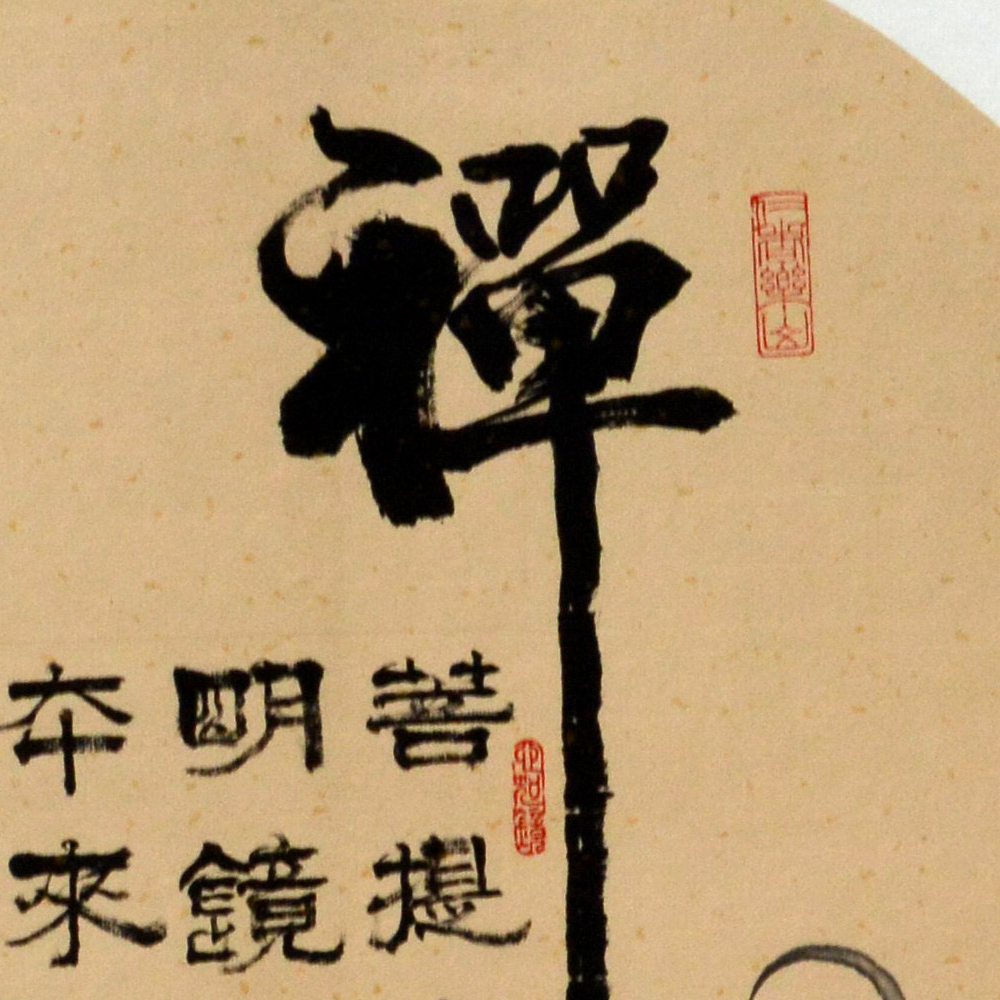 禪
菩提
明鏡
本來